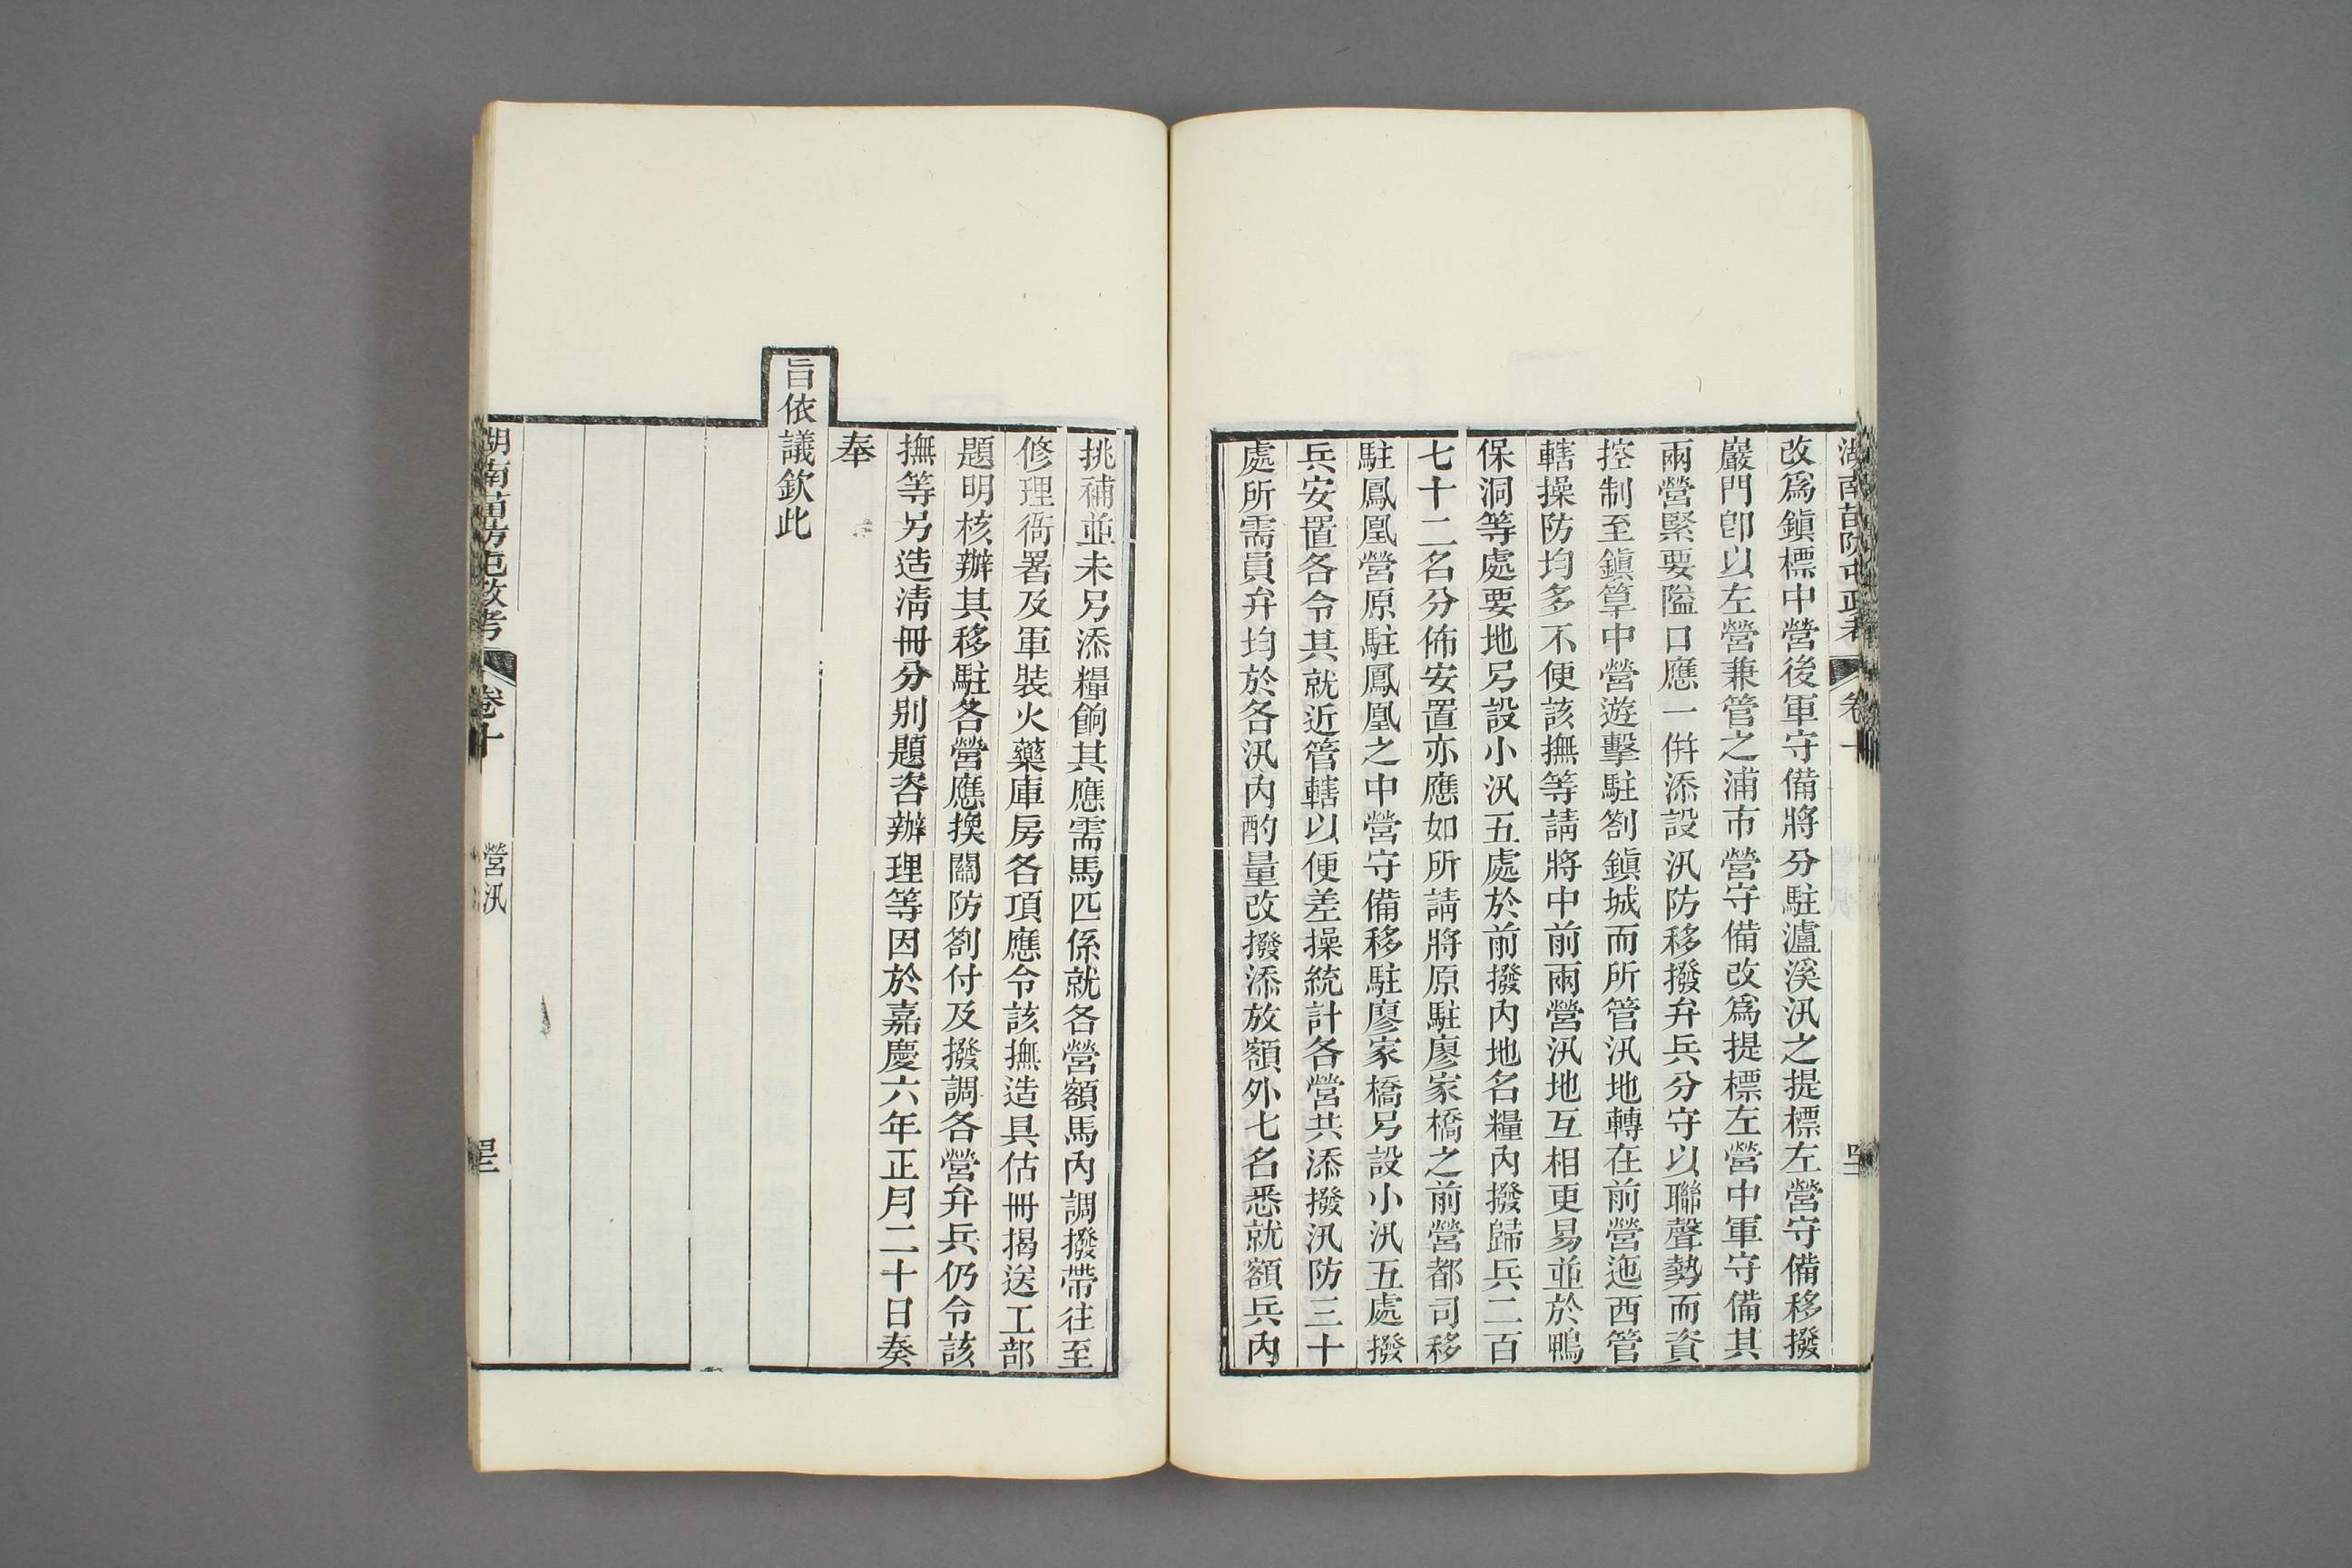 湖南苗防屯政考 卷十
改爲鎭標中營後軍守備將分駐瀘溪汛之提標左營守備移撥
巖門卽以左營兼管之浦市營守備改爲提標左營中軍守備其
兩營緊要隘口應一倂添設汛防移撥弁兵分守以聯聲勢而資
控制至鎭筸中營遊擊駐劄鎭城而所管汛地轉在前營迤西管
轄操防均多不便該撫等請將中前兩營汛地互相更易並於鴨
保洞等處要地另設小汛五處於前撥內地名糧內撥歸兵二百
七十二名分佈安置亦應如所請將原駐廖家橋之前營都司移
駐鳳凰營原駐鳳凰之中營守備移駐廖家橋另設小汛五處撥
兵安置各令其就近管轄以便差操統計各營共添撥汛防三十
處所需員弁均於各汛內酌量改撥添放額外七名悉就額兵內
挑補並未另添糧餉其應需馬匹係就各營額馬內調撥帶往至
修理衙署及軍裝火藥庫房各項應令該撫造具估冊揭送工部
題明核辦其移駐各營應換關防劄付及撥調各營弁兵仍令該
撫等另造淸冊分別題咨辦理等因於嘉慶六年正月二十日奏
奉
旨依議欽此
湖南苗防屯政考 卷十 營汛